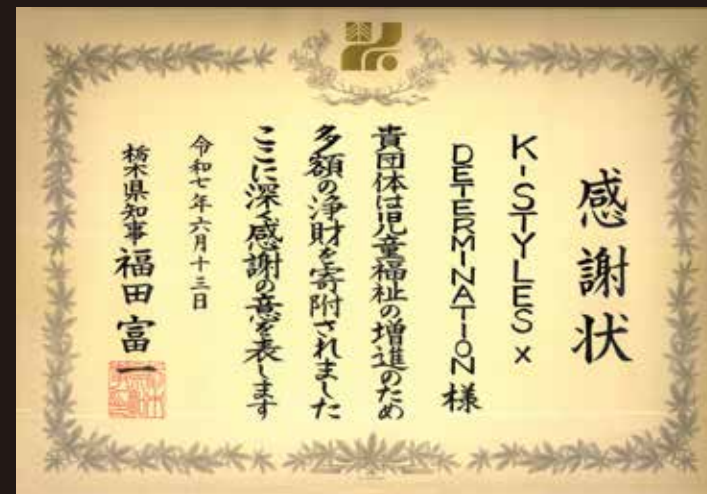 感謝状
K-STYLES x
DETERMINATION 様
貴団体は児童福祉の増進のため
多額の浄財を寄附されました
ここに深く感謝の意を表します
令和七年六月十三日
栃木県知事 福田富一